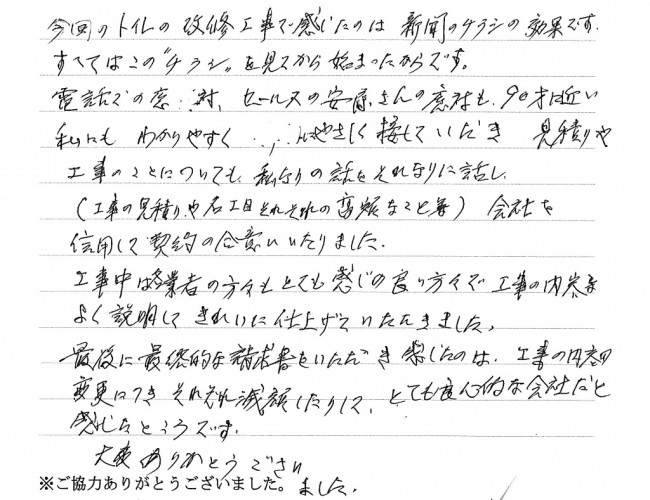 今回のトイレの改修工事で感じたのは 新聞のチラシの効果です.
すべてはこの"チラシ"を見てから始まったからです。
電話での応対、セールスの安原さんの応対も、90才に近い
私にも わかりやすく やさしく接していただき 見積りや
工事のことについても、私なりの話をそれなりに話し
(工事の見積りや各工目それぞれの なこと等) 会社を
信用して契約の合意にいたりました.
工事中は各業者の方々もとても感じの良い方々で 工事の内容を
よく説明して きれいに仕上げていただきました。
最後に最終的な請求書をいただき 感じたのは、工事の内容の
変更につき それぞれ減額したりして、とても良心的な会社だと
感じたところです.
大変ありがとうござい
※ご協力ありがとうございました。ました.